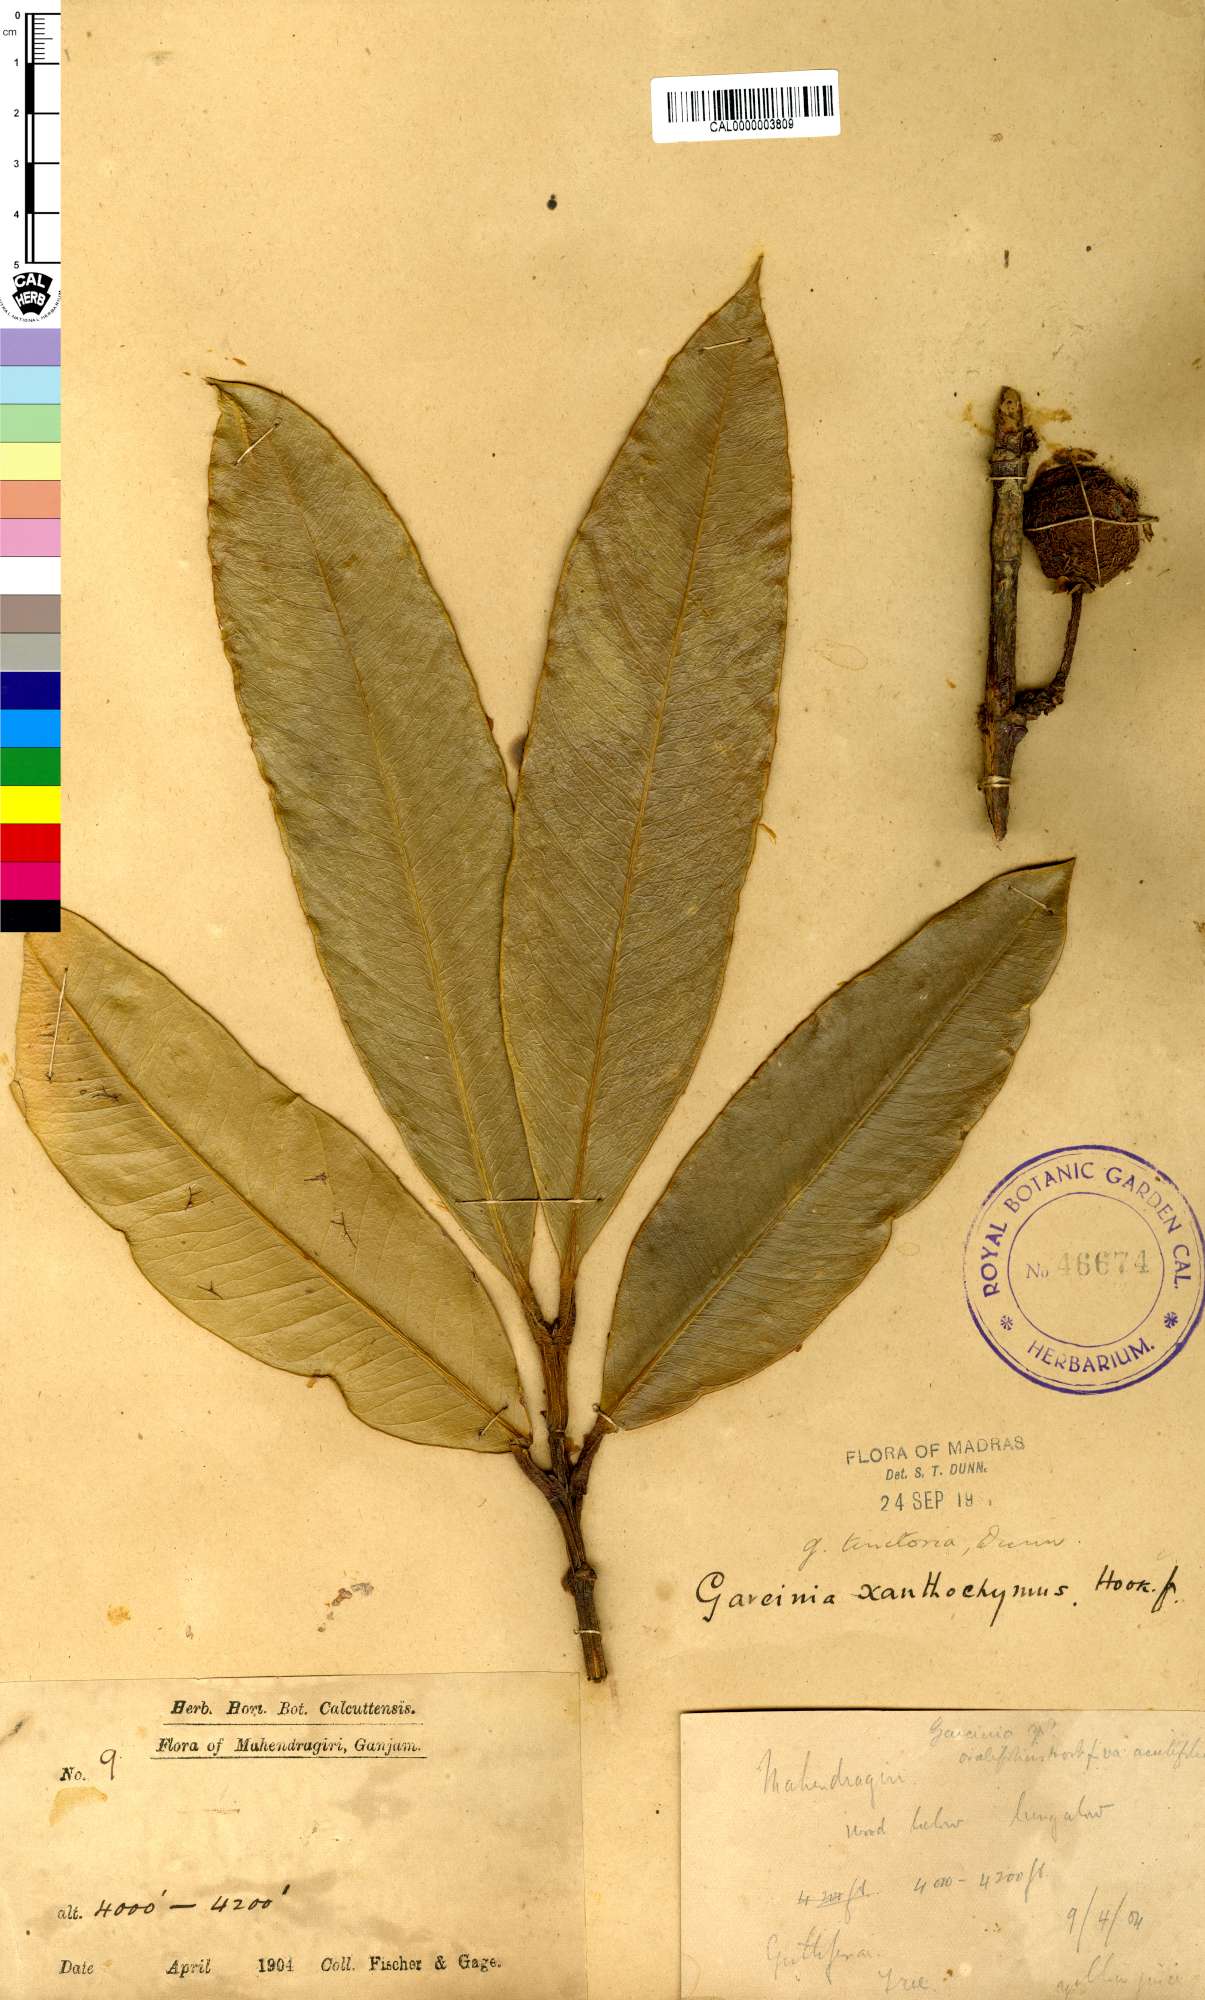 0
cm
1
2
3
4
5
CAL
HERB
CENTRAL NATIONAL HERBARIUM
CAL0000003809
ROYAL BOTANIC GARDEN CAL.
No 46674
HERBARIUM.
FLORA OF MADRAS
Det. S. T. DUNN.
24 SEP 19
G. tinctoria, Dunn.
Garcinia xanthochymus. Hook. f.
Herb. Hort. Bot. Calcuttensis.
Flora of Mahendragiri, Ganjam.
No. 9
alt. 4000' — 4200'
Date April 1904 Coll. Fischer & Gage.
Garcinia
ovalifolius Hook f. va
Mahendragiri.
wood below bungalow
4000 - 4200 ft.
9/4/04
Guttiferae.
Tree.
yellow juice